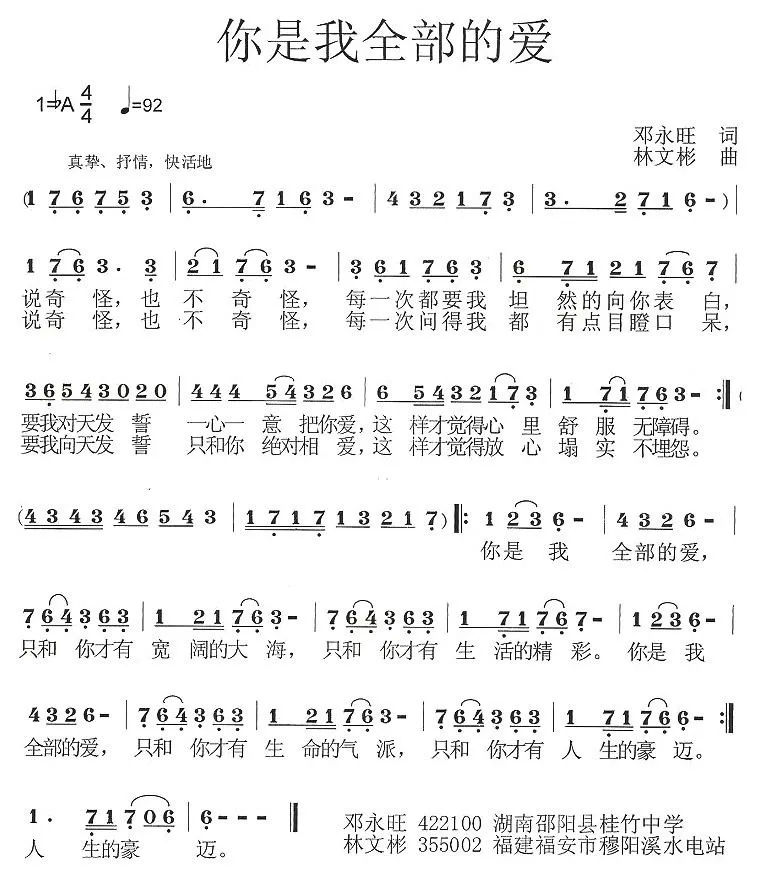 你是我全部的爱
1=♭A 4/4 ♩=92
邓永旺 词
真挚、抒情，快活地
林文彬 曲
(1 7 6 7 5 3 | 6. 7 1 6 3 - | 4 3 2 1 7 3 | 3. 2 7 1 6 -) |
1 7 6 3. 3 | 2 1 7 6 3 - | 3 6 1 7 6 3 | 6 7 1 2 1 7 6 7 |
说奇 怪，也 不 奇 怪， 每一次都要我 坦 然的向你表 白，
说奇 怪，也 不 奇 怪， 每一次问得我 都 有点目瞪口 呆，
3 6 5 4 3 0 2 0 | 4 4 4 5 4 3 2 6 | 6 5 4 3 2 1 7 3 | 1 7 1 7 6 3 - :|
要我对天发 誓 一心一 意 把你爱，这 样才觉得心 里 舒 服 无障碍。
要我向天发 誓 只和你 绝对相 爱，这 样才觉得放 心 塌 实 不埋怨。
(4 3 4 3 4 6 5 4 3 | 1 7 1 7 1 3 2 1 7) |: 1 2 3 6 - | 4 3 2 6 - |
你是 我 全部的爱，
7 6 4 3 6 3 | 1 2 1 7 6 3 - | 7 6 4 3 6 3 | 1 7 1 7 6 7 - | 1 2 3 6 - |
只和 你才有 宽 阔的大 海， 只和 你才有 生 活的精 彩。 你是 我
4 3 2 6 - | 7 6 4 3 6 3 | 1 2 1 7 6 3 - | 7 6 4 3 6 3 | 1 7 1 7 6 6 - :|
全部的爱， 只和 你才有 生 命的气 派， 只和 你才有 人 生的豪 迈。
1. 7 1 7 0 6 | 6 - - - ‖
邓永旺 422100 湖南邵阳县桂竹中学
人 生的豪 迈。
林文彬 355002 福建福安市穆阳溪水电站